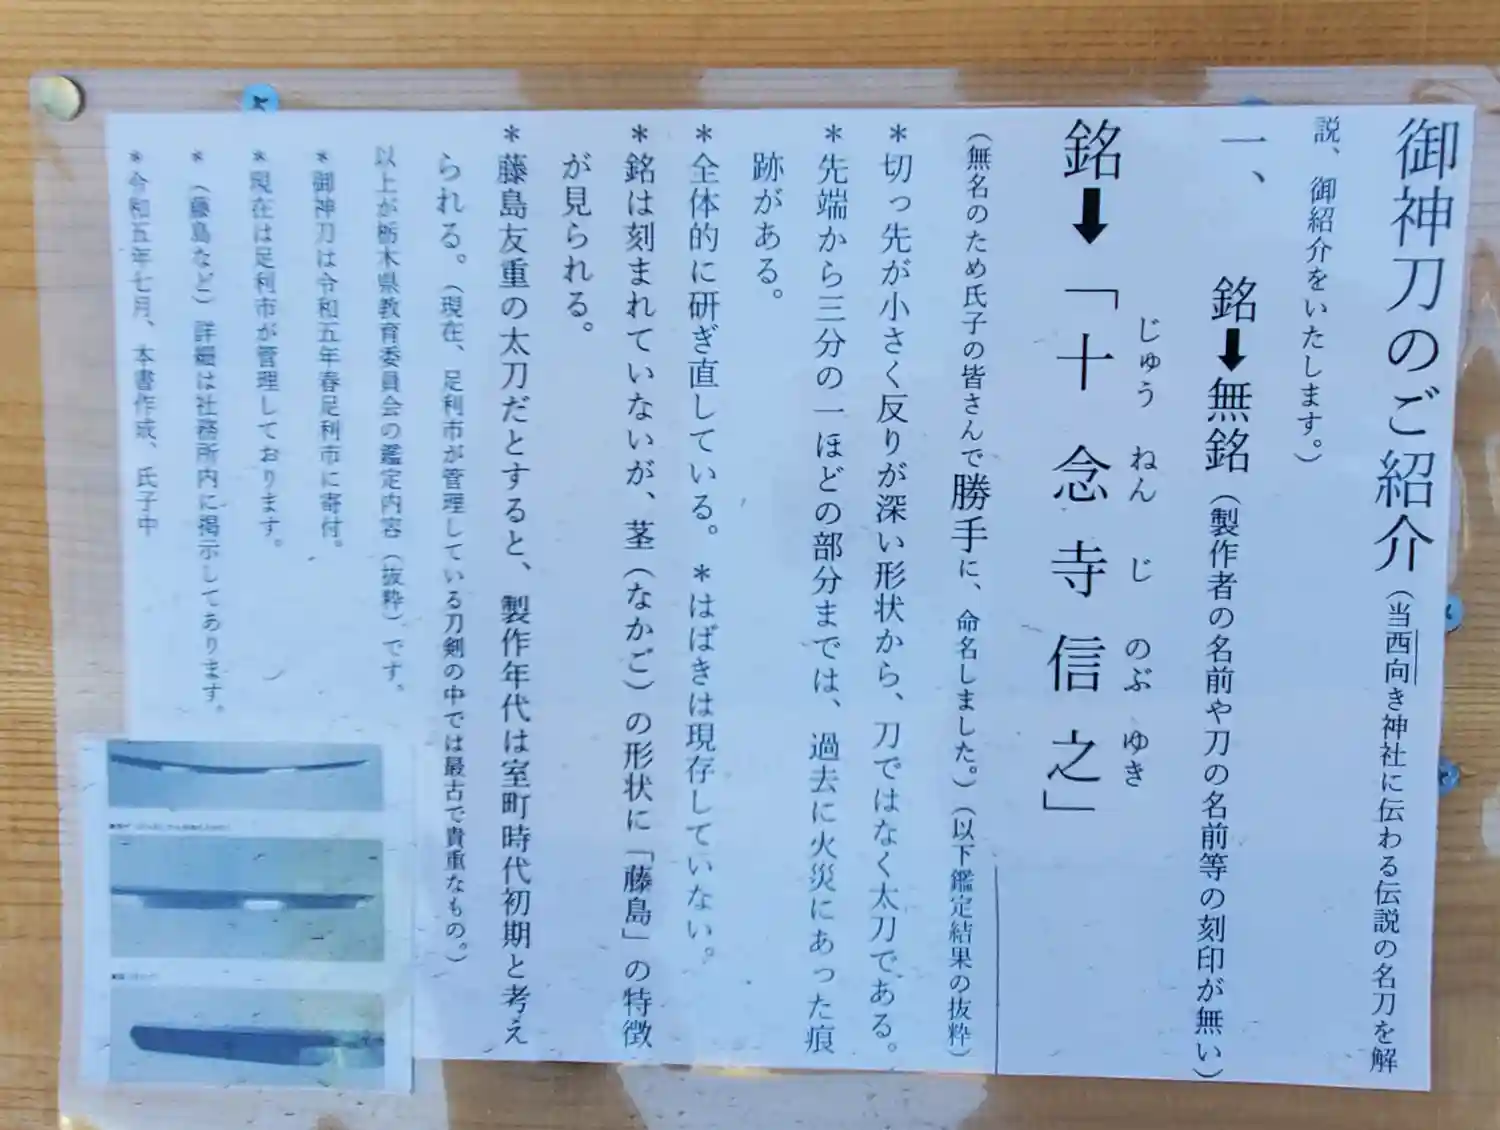 御神刀のご紹介（当西向き神社に伝わる伝説の名刀を解
説、御紹介をいたします。）
一、　銘➡無銘（製作者の名前や刀の名前等の刻印が無い）
じゅう　ねん　じ　のぶ　ゆき
銘➡「十念寺信之」
（無名のため氏子の皆さんで勝手に、命名しました。）（以下鑑定結果の抜粋）
＊切っ先が小さく反りが深い形状から、刀ではなく太刀である。
＊先端から三分の一ほどの部分までは、過去に火災にあった痕
跡がある。
＊全体的に研ぎ直している。＊はばきは現存していない。
＊銘は刻まれていないが、茎（なかご）の形状に「藤島」の特徴
が見られる。
＊藤島友重の太刀だとすると、製作年代は室町時代初期と考え
られる。（現在、足利市が管理している刀剣の中では最古で貴重なもの。）
以上が栃木県教育委員会の鑑定内容（抜粋）です。
＊御神刀は令和五年春足利市に寄付。
＊現在は足利市が管理しております。
＊（藤島など）詳細は社務所内に掲示してあります。
＊令和五年七月、本書作成、氏子中